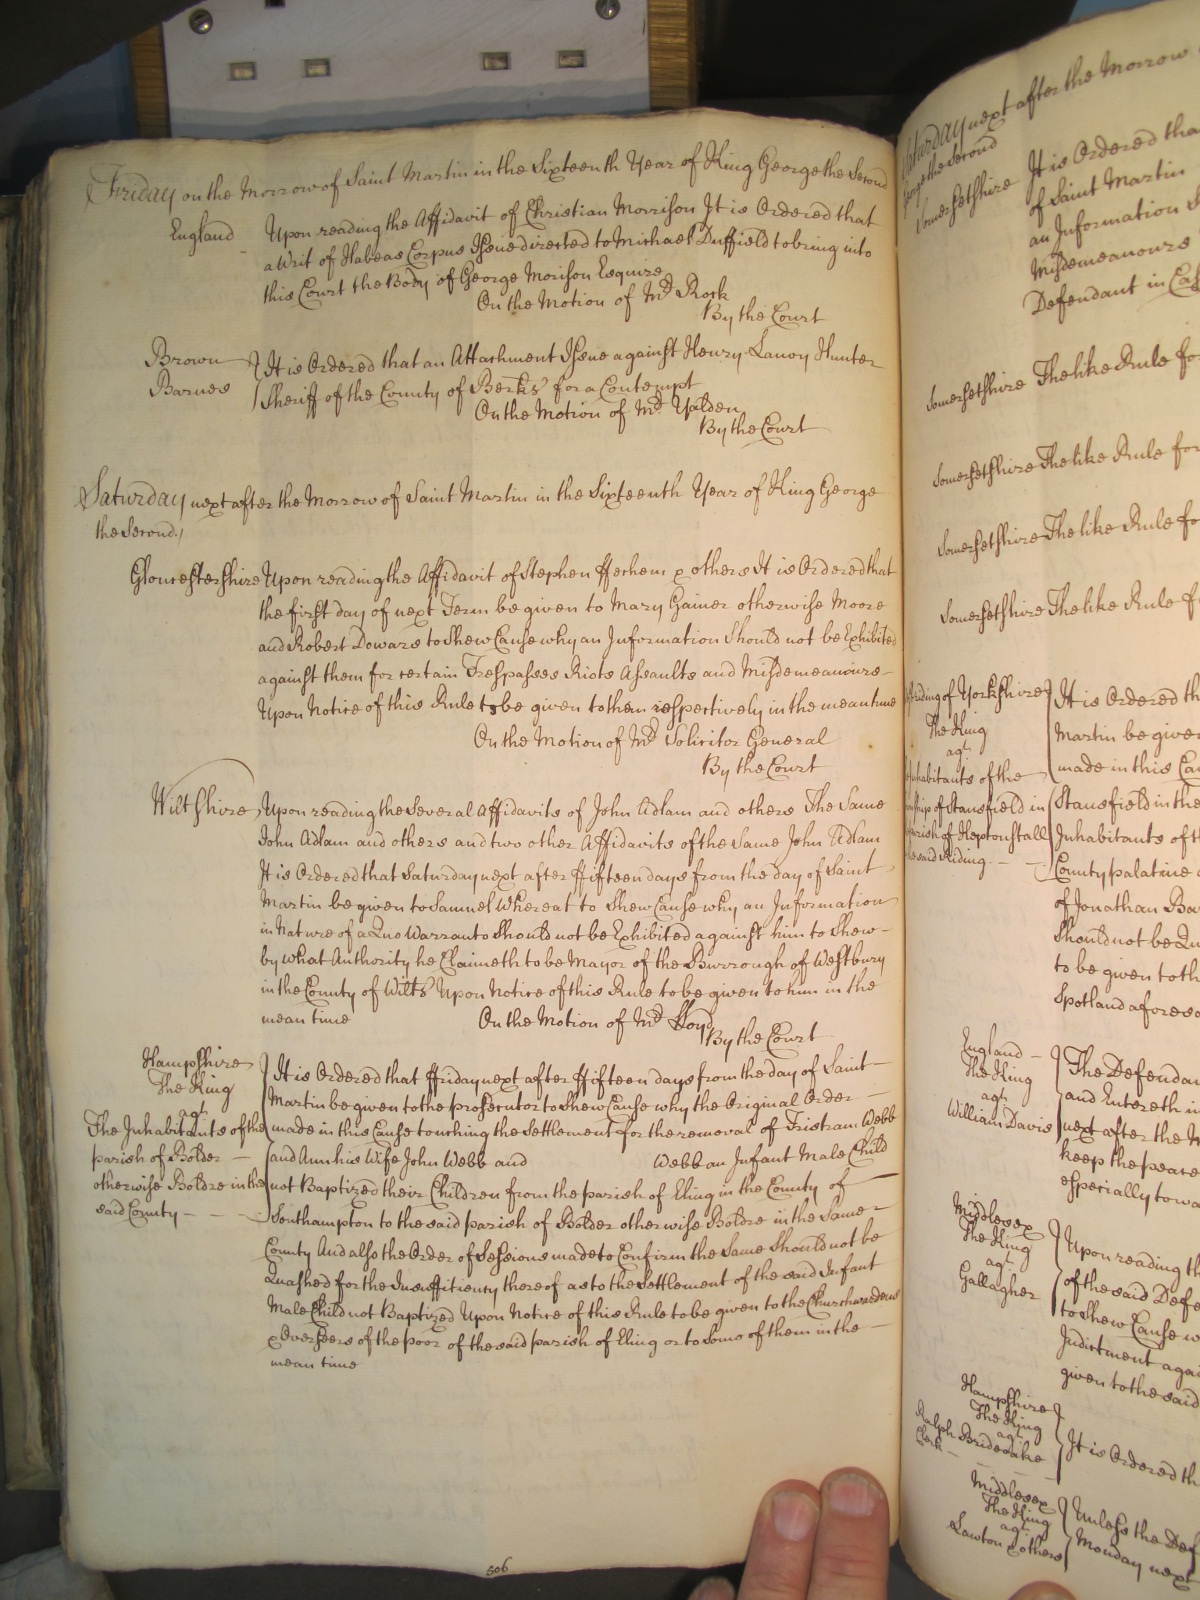 Friday on the Morrow of Saint Martin in the Sixteenth Year of King George the Second
England
Upon reading the Affidavit of Christian Morrison It is Ordered that
a Writ of Habeas Corpus Issue directed to Michael Duffield to bring into
this Court the Body of George Morison Esquire
On the Motion of Mr Rock
By the Court
Brown
Barnes
It is Ordered that an Attachment Issue against Henry Lanoy Hunter
Sheriff of the County of Berks for a Contempt
On the Motion of Mr Yalden
By the Court
Saturday next after the Morrow of Saint Martin in the Sixteenth Year of King George
the Second
Gloucestershire Upon reading the Affidavit of Stephen ffechem & others It is Ordered that
the first day of next Term be given to Mary Gainer otherwise Moore
and Robert Dowars to Shew Cause why an Information Should not be Exhibited
against them for certain Trespasses Riots Assaults and Misdemeanours
Upon Notice of this Rule to be given to them respectively in the mean time
On the Motion of Mr Solicitor General
By the Court
Wiltshire Upon reading the Several Affidavits of John Adlam and others The Same
John Adlam and others and two other Affidavits of the Same John Adlam
It is Ordered that Saturday next after ffifteen days from the day of Saint
Martin be given to Samuel Whereat to Shew Cause why an Information
in Nature of a Quo Warranto Should not be Exhibited against him to Shew
by what Authority he Claimeth to be Mayor of the Burrough of Westbury
in the County of Wilts Upon Notice of this Rule to be given to him in the
mean time
On the Motion of Mr Lloyd
By the Court
Hampshire
The King
agt
The Inhabitants of the
parish of Bolder
otherwise Boldre in the
said County
It is Ordered that ffriday next after ffifteen days from the day of Saint
Martin be given to the prosecutor to Shew Cause why the Original Order
made in this Cause touching the Settlement for the removal of Tristram Webb
and Ann his Wife John Webb and Webb an Infant Male Child
not Baptized their Children from the parish of Eling in the County of
Southampton to the said parish of Bolder otherwise Boldre in the Same
County And also the Order of Sessions made to Confirm the Same Should not be
Quashed for the Insufficiency thereof as to the Settlement of the said Infant
Male Child not Baptized Upon Notice of this Rule to be given to the Churchwardens
& Overseers of the poor of the said parish of Eling or to Some of them in the
mean time
506
Saturday next after the Morrow
George the Second
Somersetshire
It is Ordered tha
of Saint Martin
an Information
Misdemeanours
Defendant in
Somersetshire The like Rule fo
Somersetshire The like Rule for
Somersetshire The like Rule fo
Somersetshire The like Rule f
riding of Yorkshire
The King
agt
Inhabitants of the
of Stansfield in
parish of Heptonstall
said Riding
It is Ordered th
Martin be given
made in this Cau
Stansfield in the
Inhabitants of t
County palatine
of Jonathan Ba
Should not be Qu
to be given to th
Spotland aforesa
England
The King
agt
William Davis
The Defendan
and Entereth in
next after the
keep the peace
especially towa
Middlesex
The King
agt
Gallagher
Upon reading th
of the said Defe
to Shew Cause w
Indictment agai
given to the said
Hampshire
The King
agt
Ralph Brideoake
Clerk
It is Ordered th
Middlesex
The King
agt
Lawton & others
Unless the Def
Monday next